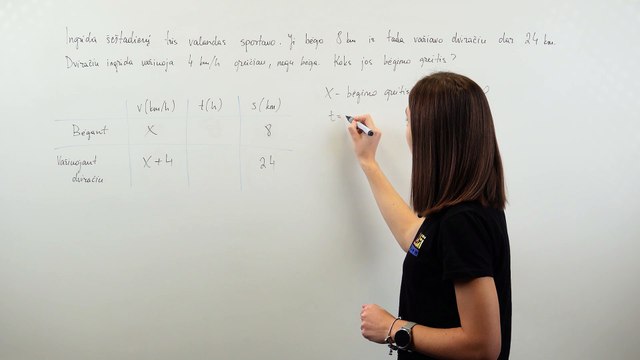 Ingrida šeštadienį tris valandas sportavo. Ji bėgo 8 km ir tada važiavo dviračiu dar 24 km.
Dviračiu Ingrida važiuoja 4 km/h greičiau, negu bėga. Koks jos bėgimo greitis?
X - bėgimo greitis ?
t =
v (km/h) t (h) s (km)
Bėgant X 8
Važiuojant dviračiu X + 4 24